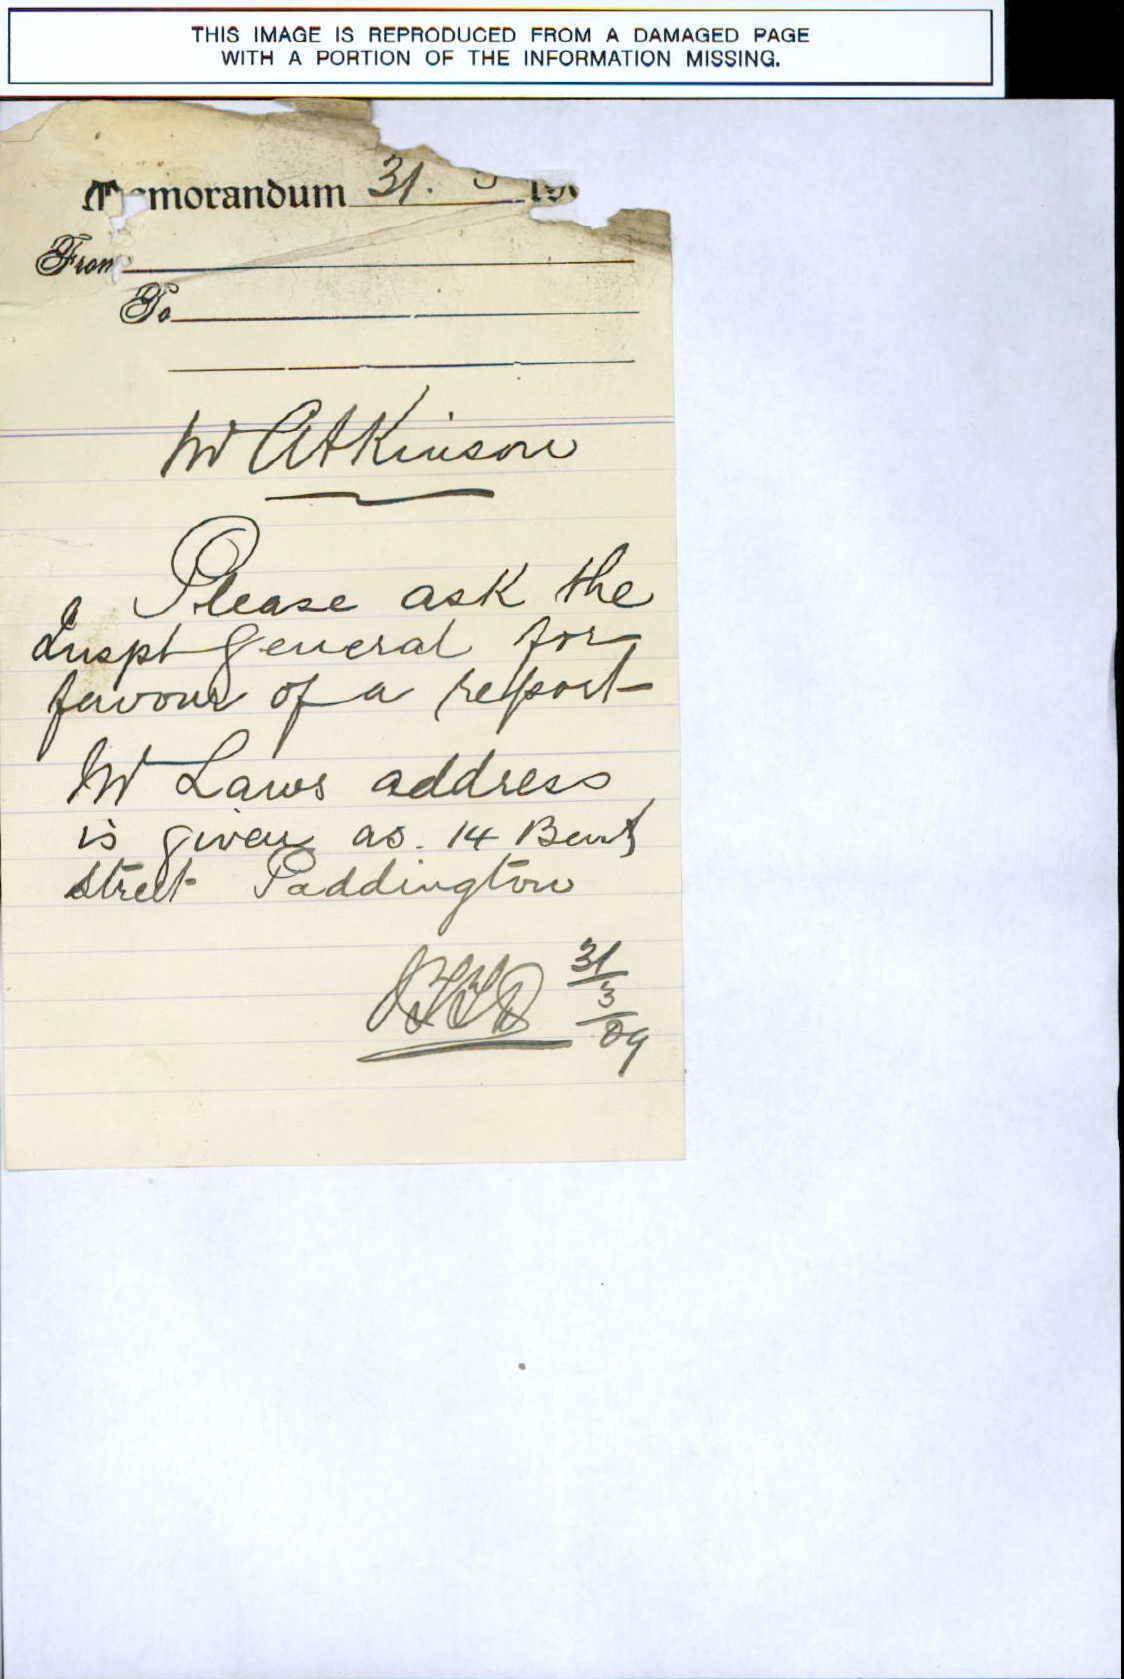 THIS IMAGE IS REPRODUCED FROM A DAMAGED PAGE
WITH A PORTION OF THE INFORMATION MISSING.
Memorandum 31. 3 190
From
To
Mr Atkinson
Please ask the
Inspt General for
favour of a report
Mr Laws address
is given as. 14 Bent
Street Paddington
31/3/09